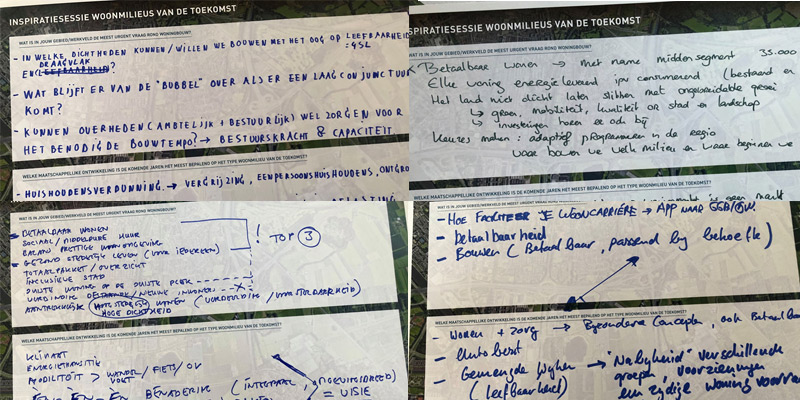 INSPIRATIESESSIE WOONMILIEUS VAN DE TOEKOMST
WAT IS IN JOUW GEBIED/WERKVELD DE MEEST URGENT VRAAG ROND WONINGBOUW?
- IN WELKE DICHTHEDEN KUNNEN/WILLEN WE BOUWEN MET HET OOG OP LEEFBAARHEID
DRAAGVLAK
EN
- WAT BLIJFT ER VAN DE "BUBBEL" OVER ALS ER EEN LAAGCONJUNCTUUR
KOMT?
- KUNNEN OVERHEDEN (AMBTELIJK + BESTUURLIJK) WEL ZORGEN VOOR
HET BENODIGDE BOUWTEMPO? → BESTUURSKRACHT & CAPACITEIT
WELKE MAATSCHAPPELIJKE ONTWIKKELING IS DE KOMENDE JAREN HET MEEST BEPALEND OP HET TYPE WOONMILIEU VAN DE TOEKOMST?
- HUISHOUDENSVERDUNNING. → VERGRIJZING, EENPERSOONSHUISHOUDENS, ONTGRO
SPIRATIESESSIE WOONMILIEUS VAN DE TOEKOMST
WAT IS IN JOUW GEBIED/WERKVELD DE MEEST URGENT VRAAG ROND WONINGBOUW?
Betaalbaar wonen → met name middensegment 35.000
Elke woning energieleverend ipv consumerend (bestaand en
Het land niet dicht laten slibben met ongebreidelde groei
↳ groen, mobiliteit, kwaliteit van stad en landschap
↳ investeringen horen er ook bij
Keuzes maken: adaptief programmeren in de regio
waar bouwen we welk milieu en waar beginnen we
WELKE MAATSCHAPPELIJKE ONTWIKKELING IS DE KOMENDE JAREN HET MEEST BEPALEND OP HET TYPE WOONMILIEU VAN DE TOEKOMST?
WAT IS IN JOUW GEBIED/WERKVELD DE MEEST URGENT VRAAG ROND WONINGBOUW?
- BETAALBAAR WONEN
SOCIAAL/MIDDELDURE HUUR
BALANS PRETTIGE WOONOMGEVING
- GEZOND STEDELIJK LEVEN (VOOR IEDEREEN)
! TOP 3
TOTAALPAKKET/OVERZICHT
INCLUSIEVE STAD
JUISTE WONING OP DE JUISTE PLEK
VERBINDING BESTAANDE/NIEUWE INWONERS
AANTREKKELIJK WONEN
HOGE DICHTHEID
WELKE MAATSCHAPPELIJKE ONTWIKKELING IS DE KOMENDE JAREN HET MEEST BEPALEND OP HET TYPE WOONMILIEU VAN DE TOEKOMST?
KLIMAAT
ENERGIETRANSITIE
MOBILITEIT > WANDEL/FIETS/OV
BENADERING (INTEGRAAL,
= VISIE
WAT IS IN JOUW GEBIED/WERKVELD DE MEEST URGENT VRAAG ROND WONINGBOUW?
- HOE FACILITEER JE WOONCARRIÈRE → APP NAAR
- betaalbaarheid
- Bouwen (Betaalbaar, passend bij behoefte)
WELKE MAATSCHAPPELIJKE ONTWIKKELING IS DE KOMENDE JAREN HET MEEST BEPALEND OP HET TYPE WOONMILIEU VAN DE TOEKOMST?
- Wonen + zorg → Bijzondere Concepten, ook Betaalba
- Gemengde wijken → "Nabijheid" verschillende
(leefbaarheid) groepen, voorzieningen